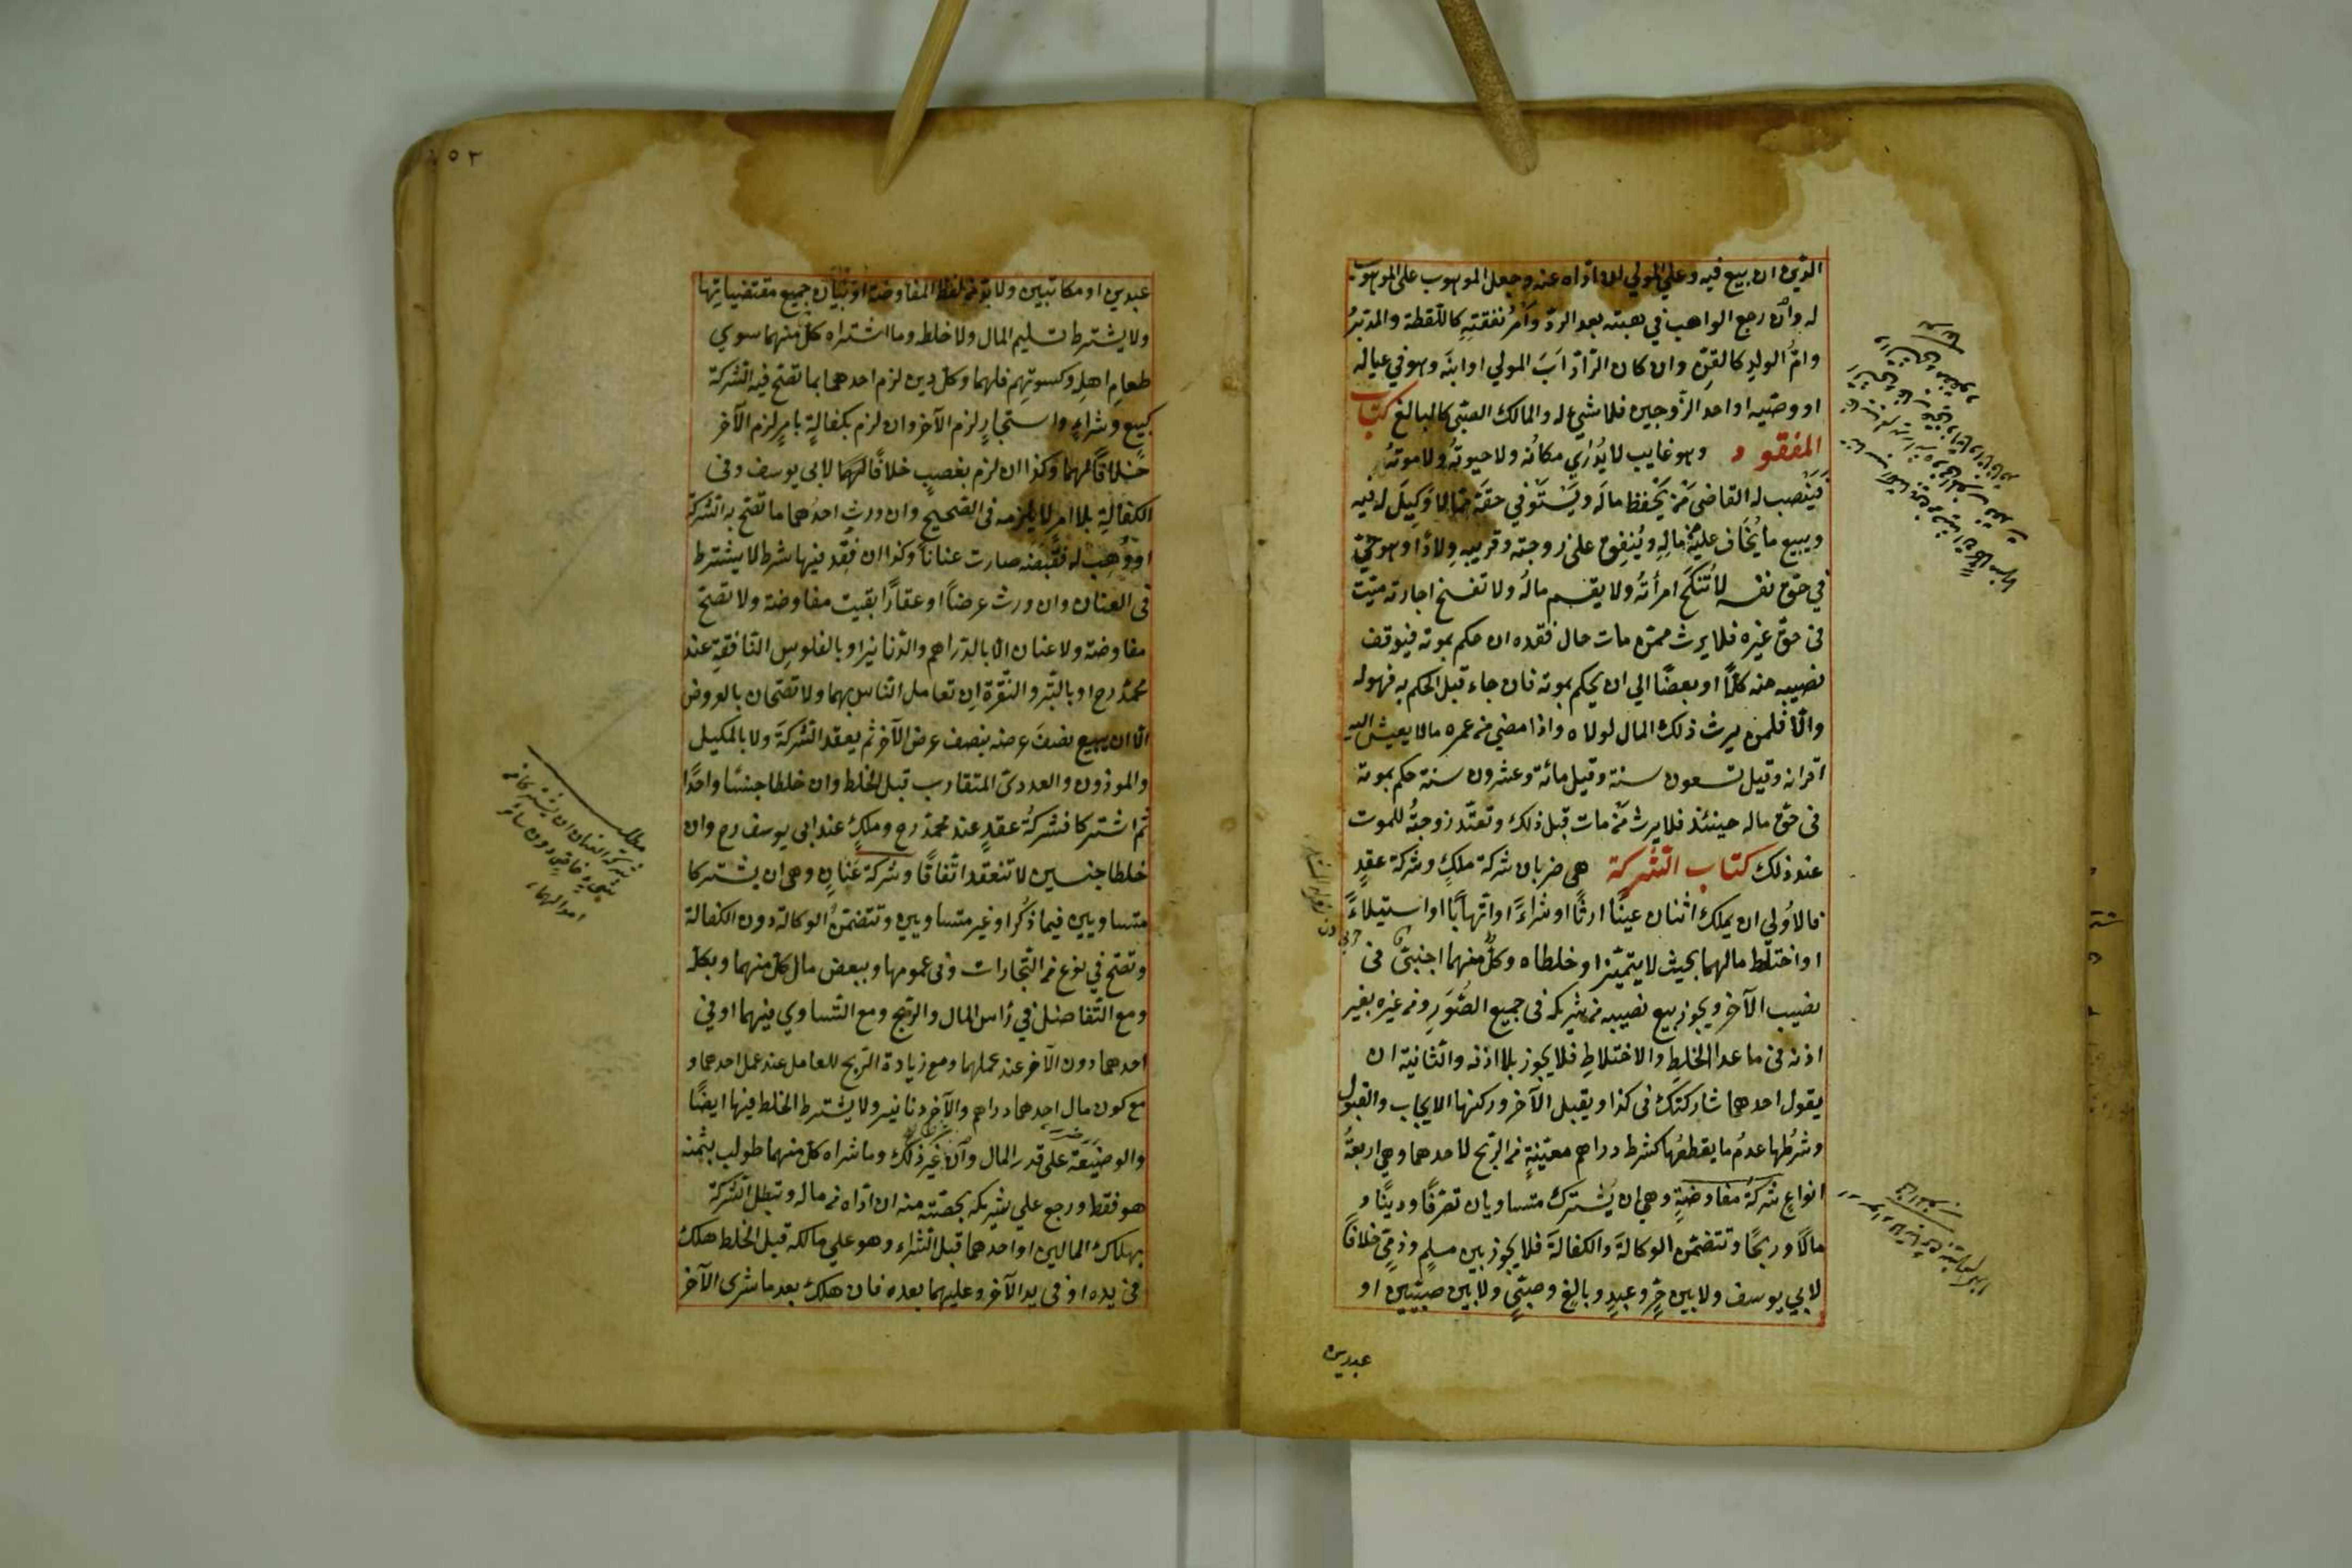 الدين ان بيع فيه وعلي المولي ان اداه عنه وجعل الموهوب علي الموهوب
له وان رجع الواهب في هبته بعد الردّ وأمرُ نفقتِهِ كاللّقطة والمدبّرُ
وامُّ الولدِ كالقنّ وان كان الرّادّ ابَ المولي او ابنَه وهو في عياله
او وصّيه او احد الزّوجين فلا شئ له والمالك الصّبّي كالبالغ كتاب
المفقود وهو غايب لا يُدْرَي مكانُه ولا حيوتُه ولا موتُهُ
فَيَنْصب له القاضي مَنْ يَحْفظ مالَه ويَسْتَوْفي حقَّه ممّا لا وَكِيلَ له فيه
ويبيع ما يُخَاف عليه من مالِهِ ويُنْفِق على زوجته وقريبِهِ وِلادًا وهو حيّ
في حقّ نفسه لا تُنْكَحُ امرأتُهُ ولا يقسم مالُه ولا تفسخ اجارته ميّت
في حقّ غيره فلا يرث ممّن مات حال فقده ان حكم بموته فيوقف
نصيبه منه كلًّا او بعضًا الي ان يحكم بموته فان جاء قبل الحكم به فهو له
والّا فلمن يرث ذلك المال لولاه واذا مضي من عمره ما لا يعيش اليه
اقرانه وقيل تسعون سنة وقيل مائة وعشرون سنة حكم بموته
في حقّ ماله حينئذ فلا يرثه من مات قبل ذلك وتعتدّ زوجتُه للموت
عند ذلك كتاب الشّركة هي ضربان شركة ملكٍ وشركة عقدٍ
فالاُولي ان يملك اثنان عينًا ارثًا او شراءً او اتّهابًا او استيلاءً
او اختلط مالهما بحيث لا يتميّز او خلطاه وكلٌّ منهما اجنبيّ في
نصيب الآخر ويجوز بيع نصيبه من شريكه في جميع الصُّوَرِ ومن غيره بغير
اذنه في ما عدا الخلطِ والاختلاطِ فلا يجوز بلا اذنه والثّانية ان
يقول احدهما شاركتك في كذا ويقبل الآخر وركنها الايجاب والقبول
وشرطُها عدمُ ما يقطعُها كشرط دراهم معيّنةٍ من الرّبح لاحدهما وهي اربعةُ
انواعٍ شركةُ مفاوضةٍ وهي ان يشترك متساويان تصرّفًا ودينًا و
مالًا وربحًا وتتضمّن الوكالةَ والكفالةَ فلا يجوز بين مسلمٍ وذمّيٍّ خلافًا
لابي يوسف ولا بين حرٍّ وعبدٍ وبالغٍ وصبّيٍ ولا بين صبيّين او
عبدين
٥٣
عبدين او مكاتبين ولا بدّ من لفظ المفاوضة او بيان جميع مقتضياتها
ولا يشترط تسليم المال ولا خلطه وما اشتراه كلّ منهما سوي
طعامِ اهلِه وكسوتِهم فلهما وكلّ دين لزم احدهما بما تصّح فيه الشّركة
كبيعٍ وشراءٍ واستيجارٍ لزم الآخر وان لزم بكفالةٍ بامرٍ لزم الآخر
خلافًا لهما وكذا ان لزم بغصبٍ خلافًا لهما لابي يوسف وفي
الكفالةِ بلا امرٍ لا يلزمه في الصّحيح وان ورث احدُهما ما تصّح به الشّركة
او وُهِبَ له فقَبَضَه صارت عنانًا وكذا ان فقد فيها شرط لا يشترط
في العنان وان ورث عرضًا او عقارًا بقيت مفاوضة ولا تصّح
مفاوضة ولا عنان الّا بالدّراهم والدّنانير او بالفلوسِ النّافقةِ عند
محمّد رح او بالتّبر والنّقرة ان تعامل النّاس بهما ولا تصّحان بالعروض
الّا ان يبيع نصفَ عرضه بنصف عرض الآخر ثم يعقد الشّركةَ ولا بالمكيل
والموزون والعدديّ المتقارب قبل الخلط وان خلطا جنسًا واحدًا
ثم اشتركا فشركةُ عقدٍ عند محمّد رح وملكٍ عند ابي يوسف رح وان
خلطا جنسين لا تنعقد اتّفاقًا وشركة عنانٍ وهي ان يشتركا
متساويين فيما ذُكر او غير متساويين وتتضمّنُ الوكالة دون الكفالة
وتصّح في نوع من التّجارات وفي عمومها وببعض مال كلّ منهما وبكلّه
ومع التّفاضل في رأس المال والرّبح ومع التّساوي فيهما او في
احدهما دون الآخر عند عملهما ومع زيادة الرّبح للعامل عند عمل احدهما و
مع كون مال احدهما دراهم والآخر دنانير ولا يشترط الخلط فيها ايضًا
والوضيعة على قدر المال وان غير ذلك وما شراه كلّ منهما طولب بثمنه
هو فقط ورجع علي شريكه بحصّته منه ان ادّاه من ماله وتبطل الشّركة
بهلاك المالين او احدهما قبل الشّراء وهو علي مالكه قبل الخلط هلك
في يده او في يد الآخر وعليهما بعده فان هلك بعد ما شرى الآخر
مطلب
شركة العنان ان يشتركا